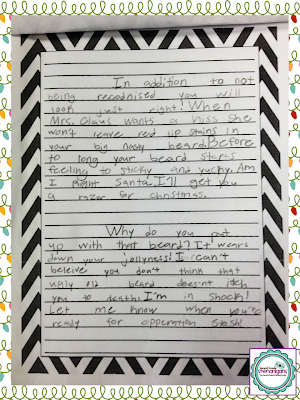 In addition to not
being recognised you will
look just right! When
Mrs. Claus wants a kiss she
won't leave red lip stains in
your big nasty beard. Before
to long your beard starts
feeling to sticky and yucky. Am
I right Santa. I'll get you
a razor for Christmas.
Why do you put
up with that beard? It wears
down your jollyness! I can't
beleive you don't think that
ugly old beard doesn't itch
you to death! I'm in shock!
Let me know when you're
ready for opperation Stash!
Shenanigans